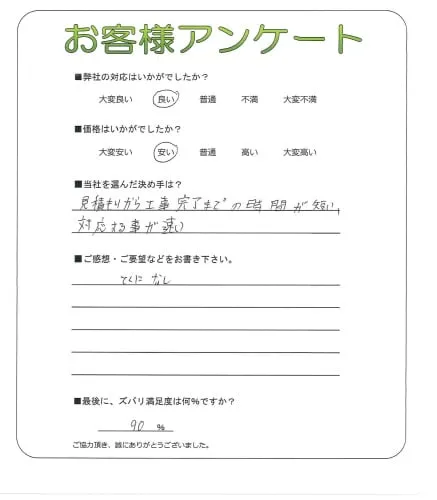 お客様アンケート
■弊社の対応はいかがでしたか？
大変良い 良い 普通 不満 大変不満
■価格はいかがでしたか？
大変安い 安い 普通 高い 大変高い
■当社を選んだ決め手は？
見積もりから工事完了までの時間が短い,
対応する事が速い
■ご感想・ご要望などをお書き下さい。
とくに なし
■最後に、ズバリ満足度は何%ですか？
90 %
ご協力頂き、誠にありがとうございました。